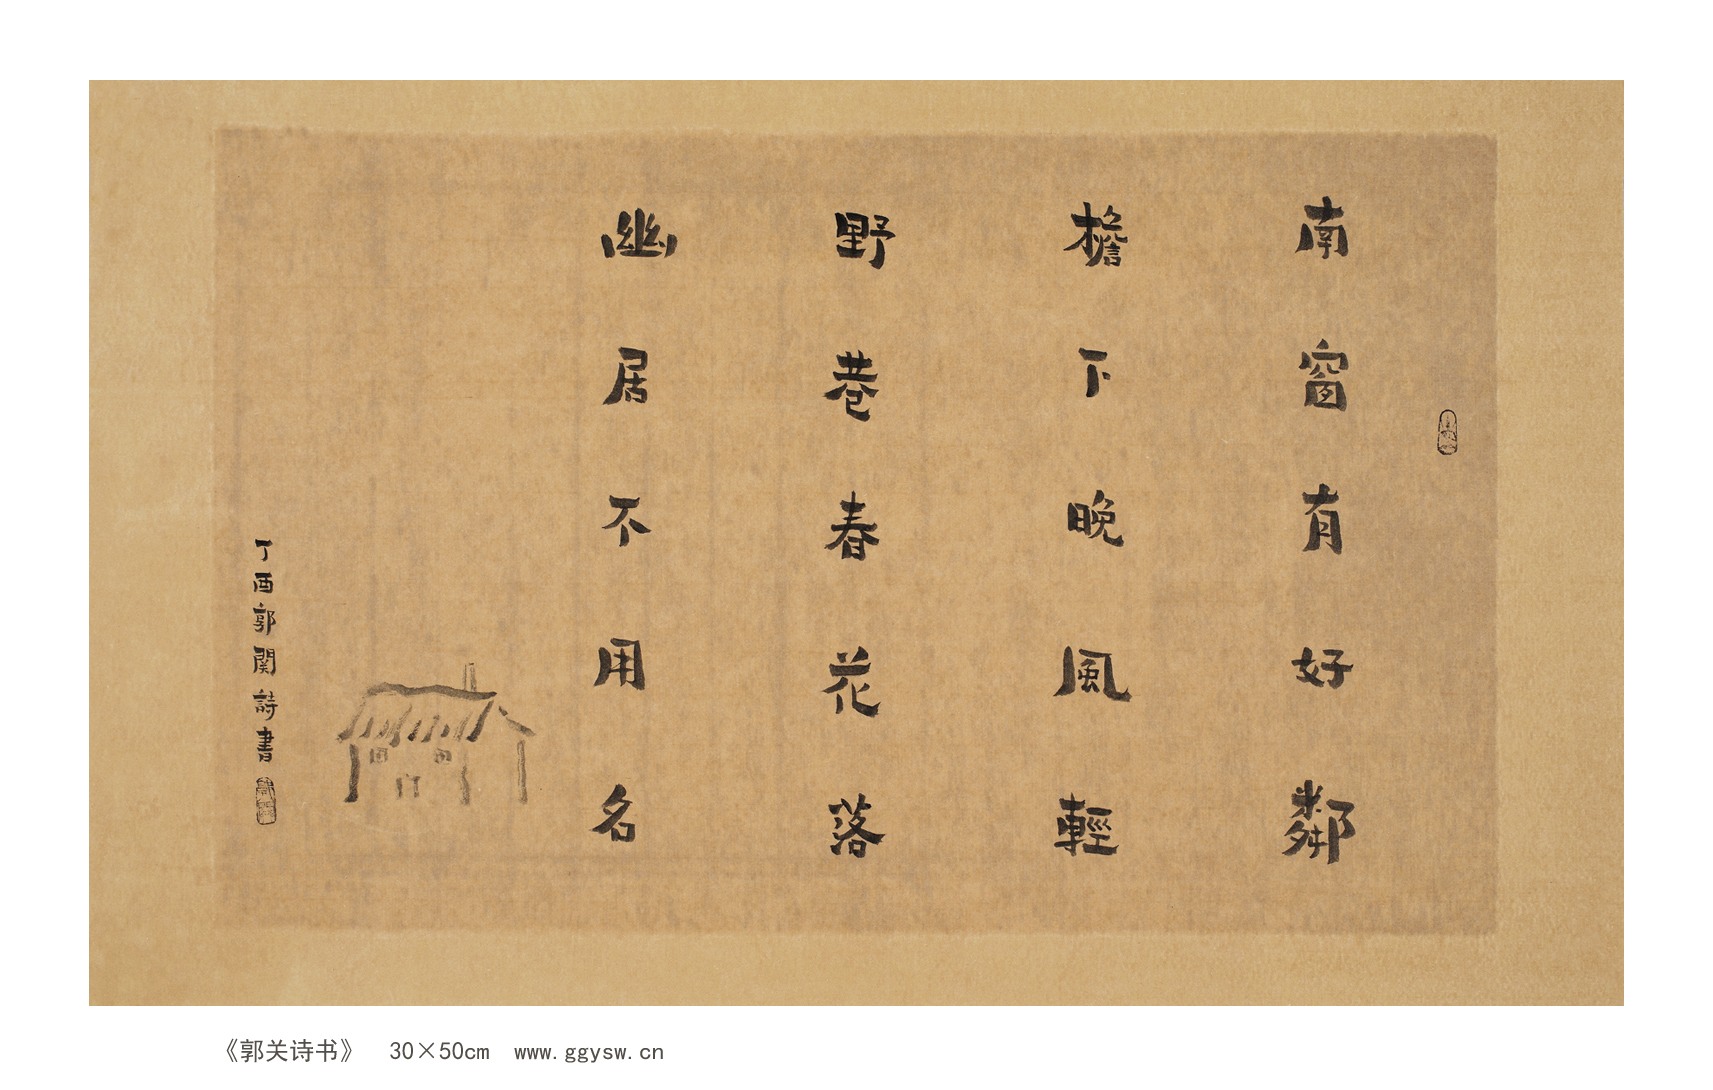 南窗有好鄰
檐下晚風輕
野巷春花落
幽居不用名
丁酉郭関詩書
《郭关诗书》 30×50cm www.ggysw.cn